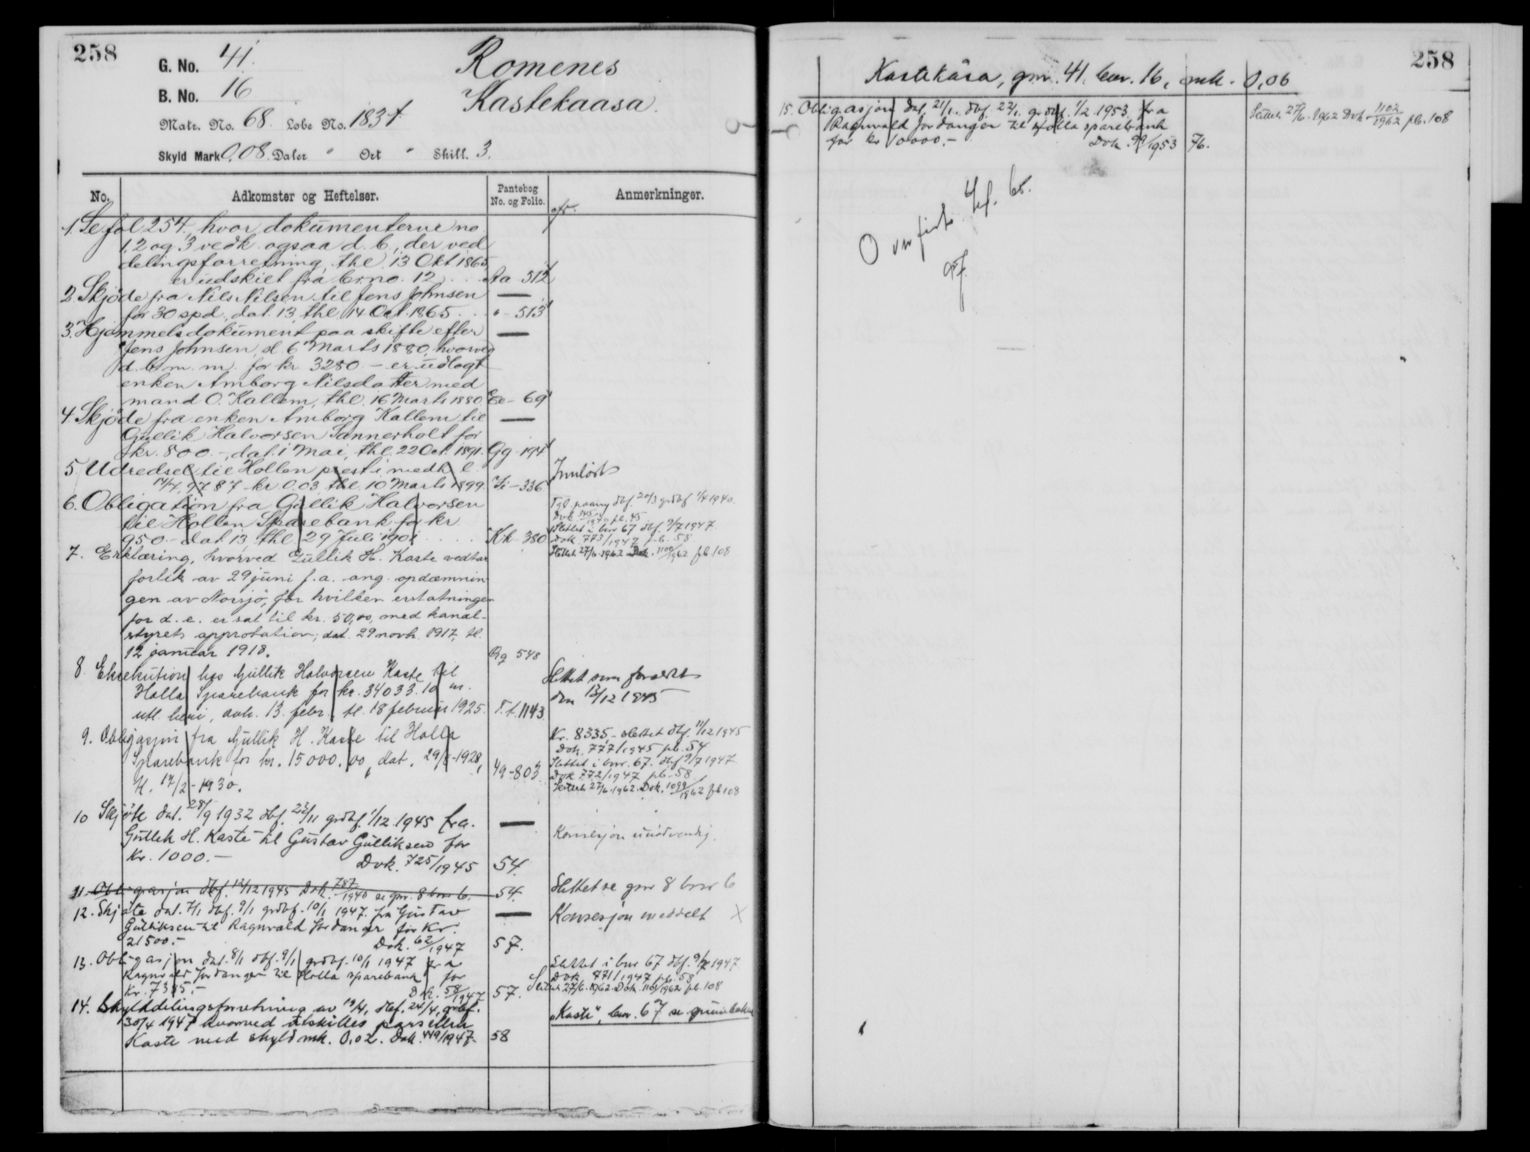 258
G. No. 41.
B. No. 16
Matr. No. 68. Løbe No. 183
Skyld Mark 0,08. Daler " Ort " Skill. 3.
Romenes
Kastekaasa.
No. Adkomster og Heftelser. Pantebog No. og Folio. Anmerkninger.
1. Se fol 254, hvor dokumenterne no
1, 2 og 3 vedk. ogsaa d. b., der ved
delingsforretning, thl. 13 Okt 1865,
er udskielt fra br.no. 12 Aa - 312
2. Skjøde fra Nils Nilsen til Jens Johnsen
for 30 spd., dat. 13, thl. 14 Oct. 1865 " - 513
3. Hjemmelsdokument paa skifte efter
Jens Johnsen, d. 6 Marts 1880, hvorved
d. b. m. m. for kr. 3280.- er udlagt
enken Amborg Nilsdatter med
mand O. Kallem, thl. 16 Marts 1880 Ee - 69
4. Skjøde fra enken Amborg Kallem til
Gullik Halvorsen Sannerholt for
kr. 800.-, dat. 1 Mai, thl. 22 Oct. 1891. Gg - 194
5. Udredsel til Hollen
kr 0.03 thl. 10 Marts 1899 - 336 Innløst
6. Obligation fra Gullik Halvorsen
til Hollen Sparebank for kr
950.- dat. 13, thl. 29 Juli 1901 Kk - 380
Slettet i bnr 67 dbf. 9/7 1947.
Dok. 773/1947 pb. 58
Slettet 27/6 1962 Dok. 1100/1962 pb 108
7. Erklæring, hvorved Gullik H. Kaste vedtar
forlik av 29 juni f. a. ang. opdæmnin-
gen av Norsjø, for hvilken erstatningen
for d. e. er sat til kr. 50,00, med kanal-
styrets approbation; dat. 29 novb. 1917, tl.
12 januar 1918. 548
8. Eksekution hos Gullik Halvorsen Kaste til
Holla Sparebank for kr. 34033.10 m.
utl. heri, avh. 13. febr., tl. 18 februar 1925. 1143
Slettet som forældet
den 13/12 1945
9. Obligasjon fra Gullik H. Kaste til Holla
Sparebank for kr. 15000.00, dat. 29/8-1928,
tl. 17/2-1930. - 803
Kr. 8335,- slettet dbf. 11/12 1945
Dok. 777/1945 pb. 54
Slettet i bnr. 67. dbf 9/7 1947
Dok 772/1947 pb. 58
Slettet 27/6 1962 Dok. 1099/1962 pb 108
10 Skjøte dat. 28/9 1932 dbf. 23/11 grdbf. 1/12 1945 fra
Gullik H. Kaste til Gustav Gulliksen for
Kr. 1000.- Dok. 725/1945 54.
Konsesjon unødvendig.
11. Obligasjon dbf. 12/12 1945 Dok. 787/1945 se gnr. 8 bnr 6. 54.
Slettet se gnr 8 bnr 6
12. Skjøte dat. 7/1 dbf. 9/1 grdbf. 10/1 1947. fra Gustav
Gulliksen til Ragnvald Jordanger for Kr.
21500.- Dok. 62/1947 57.
Konsesjon meddelt X
13. Obligasjon dat. 8/1 dbf. 9/1 grdbf. 10/1 1947 fra
Ragnvald Jordanger til Holla sparebank for
Kr. 7335.- Dok. 58/1947 57.
Slettet i bnr 67 dbf. 9/7 1947
Dok. 771/1947 pb. 58
Slettet 27/6. 1962. Dok. 1101/1962 pb. 108
14. Skylddelingsforretning av 19/4, dbf. 24/4, grdbf.
30/4 1947 hvorved utskilles parsellen
Kaste med skyld mk. 0,02. Dok. 449/1947. 58
"Kaste", bnr. 67 se grunnboken
258
Kastekåsa, gnr. 41. bnr. 16, mk. 0,06
15. Obligasjon dat. 21/1. dbf. 22/1. grdbf. 1/2. 1953. fra
Ragnvald Jordanger til Holla sparebank
for kr 10000.- Dok. 99/1953 76.
Slettet 27/6. 1962 Dok 1102/1962 pb. 108
Overført